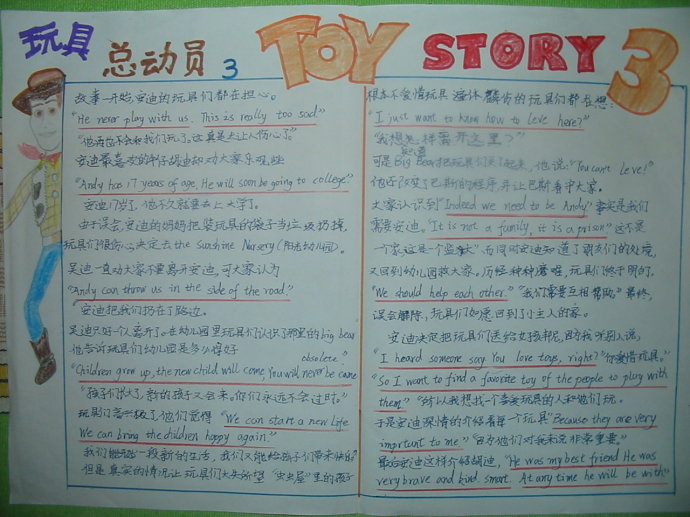 玩具
总动员 3
TOY STORY 3
故事一开始,安迪的玩具们都在担心。
"He never play with us. This is really too sad."
"他再也不会和我们玩了。这真是太让人伤心了"
安迪最喜欢的牛仔胡迪却劝大家乐观些
"Andy has 17 years of age, He will soon be going to college."
安迪17岁了,他不久就要去上大学了。
由于误会,安迪的妈妈把装玩具的袋子当垃圾扔掉,
玩具们很伤心,决定去the sunshine Nursery(阳光幼儿园)。
吴迪一直劝大家不要离开安迪,可大家认为
"Andy can throw us in the side of the road"
安迪把我们扔在了路边。
吴迪只好一个人离开了。在幼儿园里玩具们认识了那里的big bear
他告诉玩具们幼儿园是多么得好
"Children grow up, the new child will come, You will never be came obsolete."
"孩子们长大了,新的孩子又会来。你们永远不会过时。"
玩具们高兴极了他们觉得 "We can start a new life
We can bring the children happy again"
我们能开始一段新的生活,我们又能给孩子们带来快乐了
但是真实的情况让玩具们大失所望 "虫虫屋"里的孩子
根本不爱惜玩具 遍体鳞伤的玩具们都在想:
"I just want to know how to leve here?"
"我想知道怎样离开这里?"
可是Big Bear把玩具们关了起来,他说:"You can't leve!"
他还改变了巴斯的程序,并让巴斯看守大家。
大家认识到"Indeed we need to be Andy" 事实是我们
需要安迪。"It is not a family, it is a prison" 这不是
一个家,这是一个监狱" 而同时安迪知道了朋友们的处境,
又回到幼儿园救大家。历经种种磨难,玩具们终于明白,
"We should help each other." "我们需要互相帮助" 最终,
误会解除,玩具们如愿回到了小主人的家。
安迪决定把玩具们送给女孩邦妮,因为我听别人说,
"I heard someone say You love toys, right?" "你爱惜玩具。"
"So I want to find a favorite toy of the people to play with
them" "所以我想找一个喜爱玩具的人和他们玩。
于是安迪深情的介绍着每一个玩具"Because they are very
imprtant to me" "因为他们对我来说非常重要。"
最后安迪这样介绍胡迪,"He was my best friend He was
very brave and kind. smart. At any time he will be with"